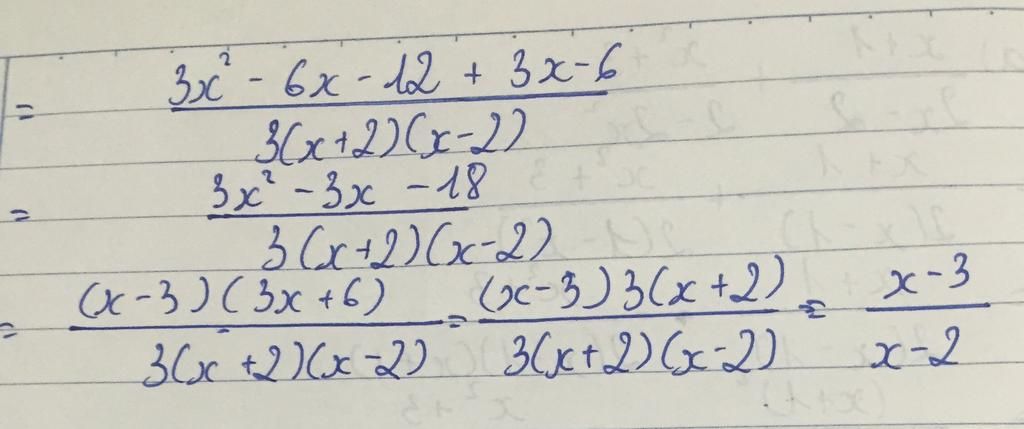 = (3x² - 6x - 12 + 3x - 6) / (3(x+2)(x-2))
= (3x² - 3x - 18) / (3(x+2)(x-2))
= ((x-3)(3x+6)) / (3(x+2)(x-2)) = ((x-3)3(x+2)) / (3(x+2)(x-2)) = (x-3) / (x-2)